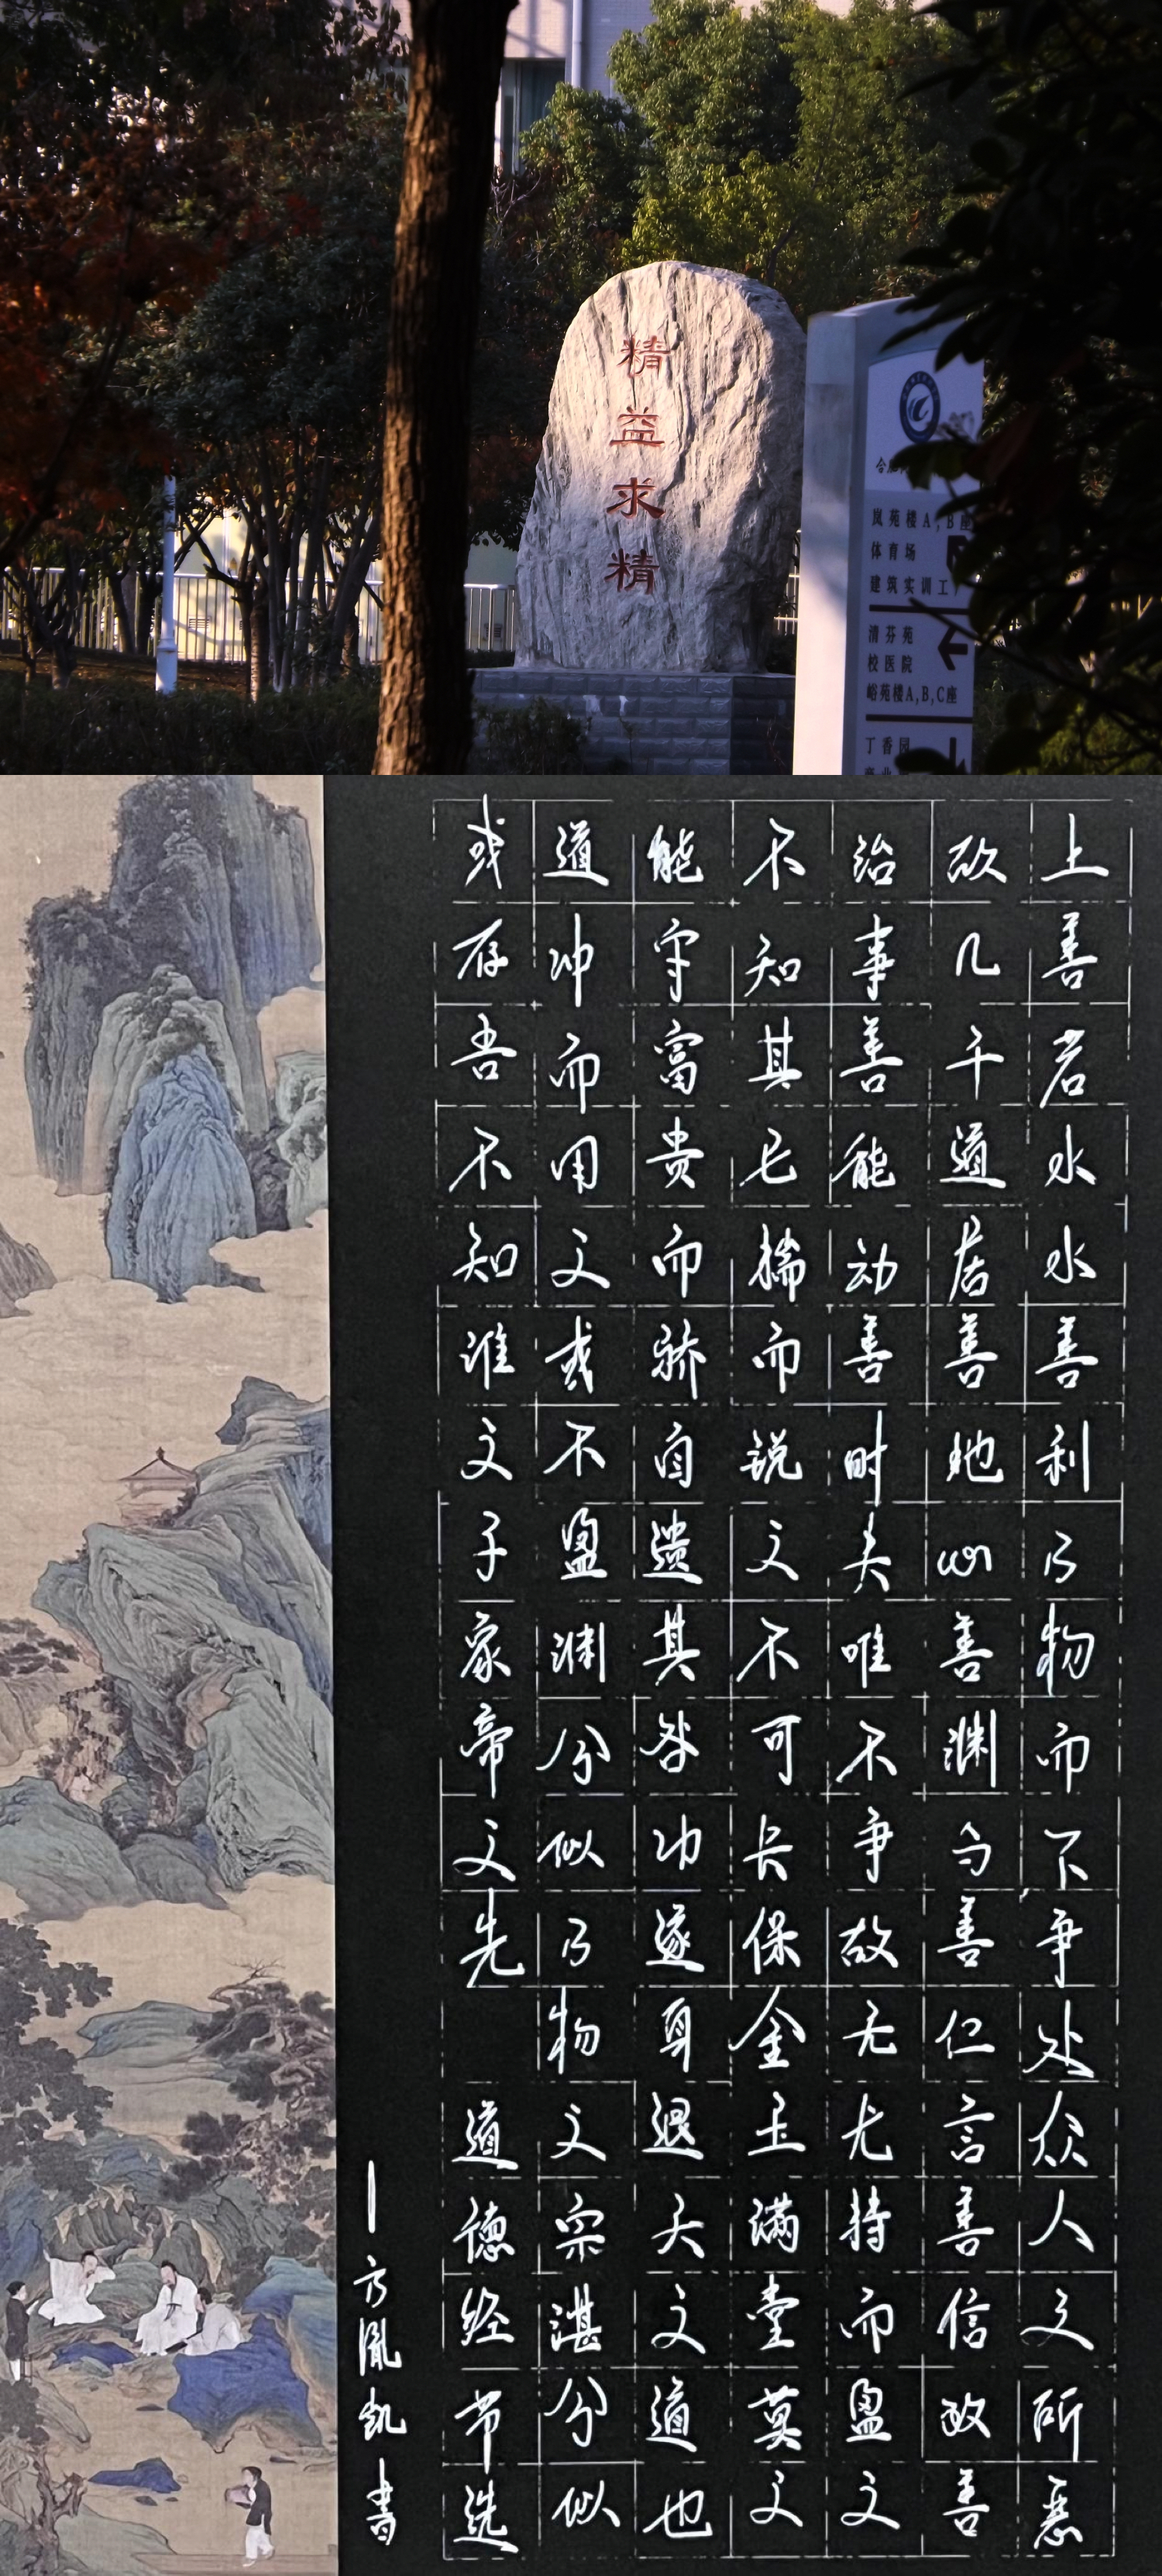 精益求精
岚苑楼A,B座
体育场
建筑实训工
清芬苑
校医院
峪苑楼A,B,C座
丁香园
上善若水水善利万物而不争处众人之所恶
故几于道居善地心善渊与善仁言善信政善
治事善能动善时夫唯不争故无尤持而盈之
不知其已揣而锐之不可长保金玉满堂莫之
能守富贵而骄自遗其咎功遂身退天之道也
道冲而用之或不盈渊兮似万物之宗湛兮似
或存吾不知谁之子象帝之先 道德经节选
—方胤凯书